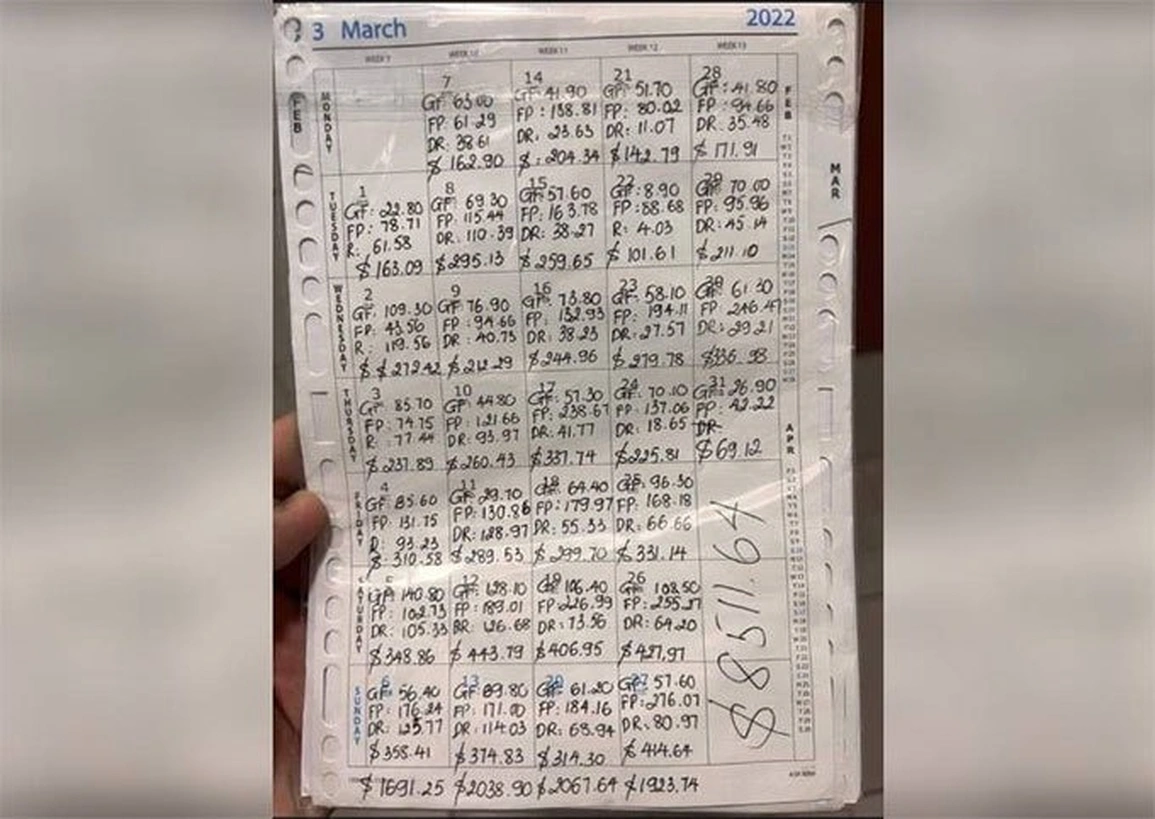 3 March 2022
WEEK 10 WEEK 11 WEEK 12 WEEK 13
FEB
MONDAY
7
GF: 63.00
FP: 61.29
DR: 38.61
$ 162.90
14
GF: 41.90
FP: 138.81
DR: 23.63
$: 204.34
21
GF: 51.70
FP: 80.02
DR: 11.07
$ 142.79
28
GF: 41.80
FP: 94.66
DR: 35.48
$ 171.91
TUESDAY
1
GF: 22.80
FP: 78.71
R: 61.58
$ 163.09
8
GF: 69.30
FP: 115.44
DR: 110.39
$ 295.13
15
GF: 57.60
FP: 163.78
DR: 38.27
$ 259.65
22
GF: 8.90
FP: 88.68
R: 4.03
$ 101.61
29
GF: 70.00
FP: 95.96
DR: 45.14
$ 211.10
WEDNESDAY
2
GF: 109.30
FP: 43.56
R: 119.56
$ $ 272.42
9
GF: 76.90
FP: 94.66
DR: 40.73
$ 212.29
16
GF: 73.80
FP: 132.93
DR: 38.23
$ 244.96
23
GF: 58.10
FP: 194.11
DR: 27.57
$ 279.78
30
GF: 61.30
FP 246.47
DR: 29.21
$336.98
THURSDAY
3
GF: 85.70
FP: 74.75
R: 77.44
$ 237.89
10
GF: 44.80
FP: 121.66
DR: 93.97
$ 260.43
17
GF: 57.30
FP: 238.67
DR: 41.77
$ 337.74
24
GF: 70.10
FP: 137.06
DR: 18.65
$ 225.81
31
GF: 26.90
FP: 42.22
DR:
$ 69.12
FRIDAY
4
GF: 85.60
FP: 131.75
R: 93.23
$ 310.58
11
GF: 29.70
FP: 130.86
DR: 128.97
$ 289.53
18
GF: 64.40
FP: 179.97
DR: 55.33
$ 299.70
25
GF: 96.30
FP: 168.18
DR: 66.66
$ 331.14
SATURDAY
5
GF: 140.80
FP: 102.73
DR: 105.33
$ 348.86
12
GF: 128.10
FP: 189.01
DR: 126.68
$ 443.79
19
GF: 106.40
FP: 226.99
DR: 73.56
$ 406.95
26
GF: 108.50
FP: 255.27
DR: 64.20
$ 427.97
SUNDAY
6
GF: 56.40
FP: 176.24
DR: 125.77
$ 358.41
13
GF: 89.80
FP: 171.00
DR: 114.03
$ 374.83
20
GF: 61.20
FP: 184.16
DR: 68.94
$ 314.30
27
GF: 57.60
FP: 276.07
DR: 80.97
$ 414.64
$ 8511.64
$ 1691.25 $ 2038.90 $ 2067.64 $ 1923.74
FEB
MAR
APR